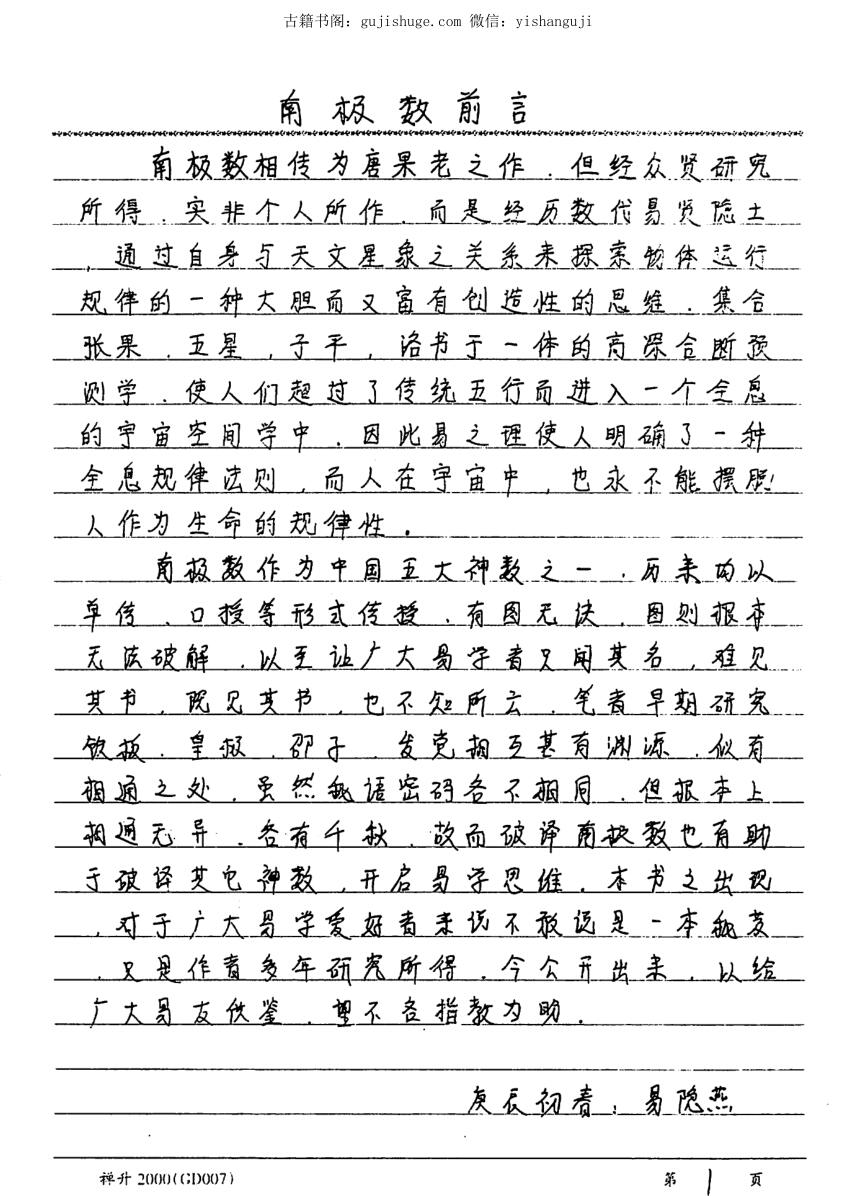 古籍书阁：gujishuge.com 微信：yishanguji
南极数前言
南极数相传为唐果老之作．但经众贤研究
所得．实非个人所作．而是经历数代易贤隐士
，通过自身与天文星象之关系来探索物体运行
规律的一种大胆而又富有创造性的思维．集合
张果．五星，子平，洛书于一体的高深合断预
测学．使人们超过了传统五行而进入一个全息
的宇宙空间学中．因此易之理使人明确了一种
全息规律法则，而人在宇宙中，也永不能摆脱
人作为生命的规律性．
南极数作为中国五大神数之一．历来均以
单传．口授等形式传授．有图无诀．图则报本
无法破解．以至让广大易学者只闻其名，难见
其书．既见其书．也不知所云．笔者早期研究
铁板．皇极．邵子．发觉相互甚有渊源．似有
相通之处．虽然秘语密码各不相同．但报本上
相通无异．各有千秋．故而破译南极数也有助
于破译其它神数．开启易学思维．本书之出现
，对于广大易学爱好者来说不敢说是一本秘芨
．只是作者多年研究所得．今公开出来．以给
广大易友佚鉴．望不吝指教为助．
庚辰初春：易隐燕
禅升 2000(GD007)
第 1 页